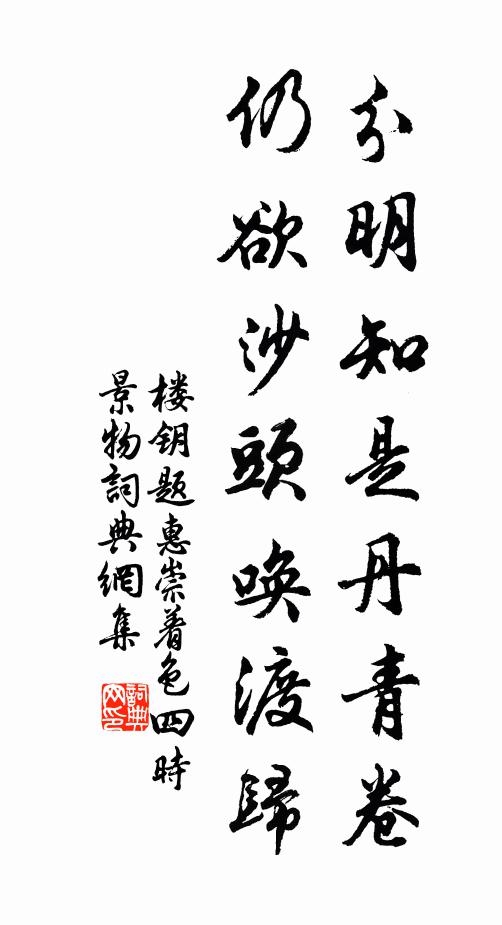 分明知是丹青卷
仍欲沙頭喚渡歸
楼钥题惠崇着色四時
景物詞典網集
詞典
网印